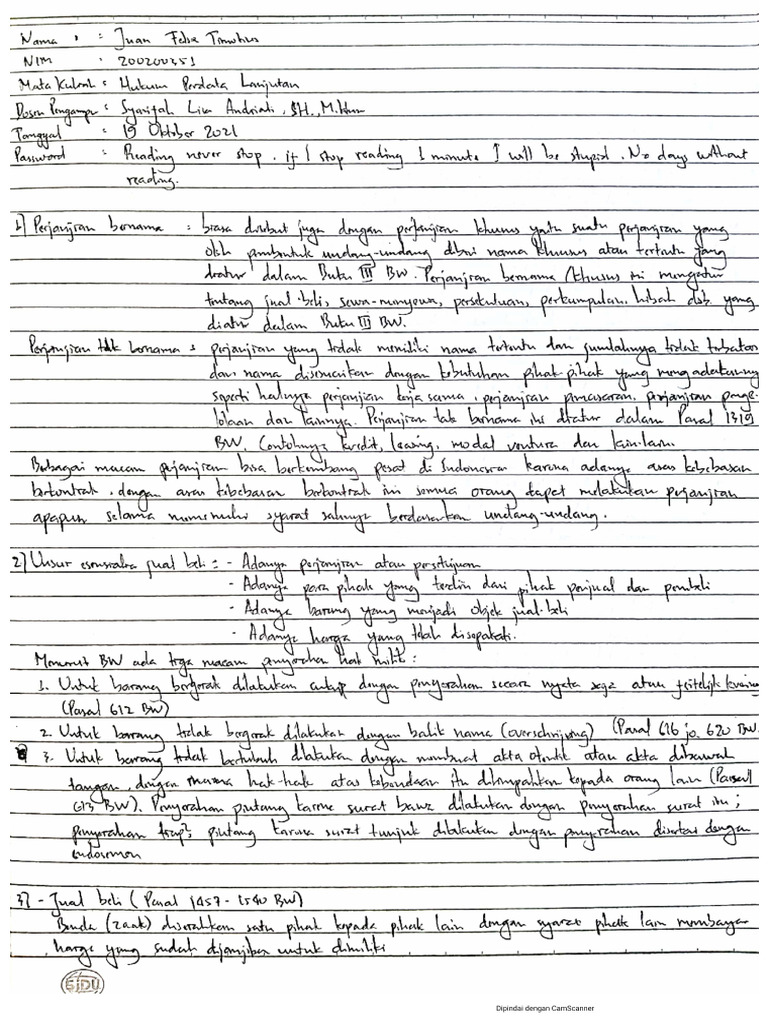 Nama : Juan Felix Timotius
NIM : 200200351
Mata Kuliah : Hukum Perdata Lanjutan
Dosen Pengampu : Syarifah Lisa Andriati, SH., M.Hum
Tanggal : 19 Oktober 2021
Password : Reading never stop. if I stop reading 1 minute I will be stupid. No days without
reading.
1) Perjanjian bernama : biasa disebut juga dengan perjanjian khusus yaitu suatu perjanjian yang
oleh pembentuk undang-undang diberi nama khusus atau tertentu yang
diatur dalam Buku III BW. Perjanjian bernama/khusus ini mengatur
tentang jual-beli, sewa-menyewa, persekutuan, perkumpulan, hibah dsb. yang
diatur dalam Buku III BW.
Perjanjian tak bernama : perjanjian yang tidak memiliki nama tertentu dan jumlahnya tidak terbatas
dan nama disesuaikan dengan kebutuhan pihak-pihak yang mengadakannya
seperti halnya perjanjian kerja sama, perjanjian pemasaran, perjanjian penge-
lolaan dan lainnya. Perjanjian tak bernama ini diatur dalam Pasal 1319
BW. Contohnya kredit, leasing, modal ventura dan lain-lain.
Berbagai macam perjanjian bisa berkembang pesat di Indonesia karena adanya asas kebebasan
berkontrak. dengan asas kebebasan berkontrak ini semua orang dapat melakukan perjanjian
apapun selama memenuhi syarat sahnya berdasarkan undang-undang.
2) Unsur esensialia jual beli : - Adanya perjanjian atau persetujuan
- Adanya para pihak yang terdiri dari pihak penjual dan pembeli
- Adanya barang yang menjadi objek jual-beli
- Adanya harga yang telah disepakati.
Menurut BW ada tiga macam penyerahan hak milik :
1. Untuk barang bergerak dilakukan cukup dengan penyerahan secara nyata saja atau feitelijk levering
(Pasal 612 BW)
2. Untuk barang tidak bergerak dilakukan dengan balik nama (overschrijving) (Pasal 616 jo. 620 BW.
3. Untuk barang tidak bertubuh dilakukan dengan membuat akta otentik atau akta dibawah
tangan, dengan mana hak-hak atas kebendaan itu dilimpahkan kepada orang lain (Pasal
613 BW). Penyerahan piutang karena surat bawa dilakukan dengan penyerahan surat itu ;
penyerahan tiap2 piutang karena surat tunjuk dilakukan dengan penyerahan disertai dengan
endosemen
3) - Jual beli (Pasal 1457 - 1540 BW)
Benda (zaak) diserahkan satu pihak kepada pihak lain dengan syarat pihak lain membayar
harga yang sudah dijanjikan untuk dimiliki
SIDU
Dipindai dengan CamScanner